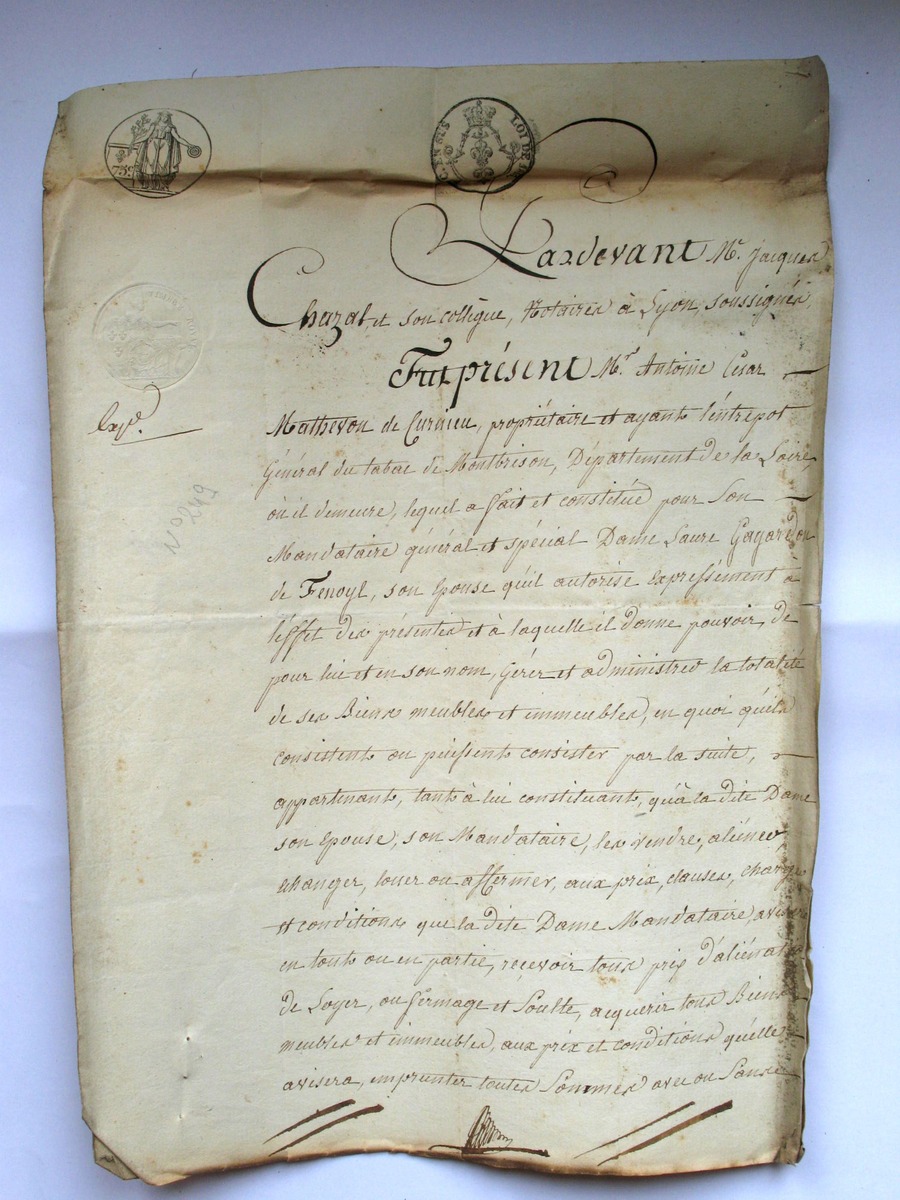 75c
C. EN SUS
LOI DE 1
Pardevant Mr. Jacques
Chazal, et son collègue, Notaires à Lyon, soussignés,
Fut présent Mr. Antoine César
Mathevon de Curnieu, propriétaire et ayant l'éntrepot
Général du tabac de Montbrison, Département de la Loire,
où il demeure, lequel a fait et constitué pour Son
Mandataire général et spécial Dame Laure Gayardon
de Fenoyl, son Epouse qu'il autorise expressément à
l'éffet des présentes et à laquelle il donne pouvoir, de
pour lui et en son nom, Gérer et administrer la totalité
de ses Biens meubles et immeubles, en quoi qu'ils
consistent ou puissent consister par la suite,
appartenant, tant à lui constituant, qu'à la dite Dame
son Epouse, son Mandataire, les vendre, aliéner,
échanger, louer ou affermer, aux prix, clauses, charges
et conditions que la dite Dame Mandataire, avisera
en tout ou en partie, recevoir tous prix d'aliénation
de Loyer, ou fermage et Soulte, acquérir tous Biens
meubles et immeubles, aux prix et conditions qu'elle
avisera, emprunter toutes Sommes avec ou Sans
Expé.
N° 249